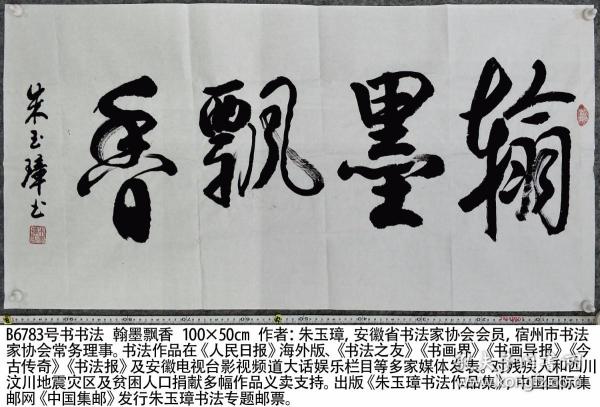 翰墨飘香
朱玉璋书
B6783号书书法 翰墨飘香 100×50㎝ 作者：朱玉璋，安徽省书法家协会会员，宿州市书法
家协会常务理事。书法作品在《人民日报》海外版、《书法之友》《书画界》《书画导报》《今
古传奇》《书法报》及安徽电视台影视频道大话娱乐栏目等多家媒体发表，对残疾人和四川
汶川地震灾区及贫困人口捐献多幅作品义卖支持。出版《朱玉璋书法作品集》，中国国际集
邮网《中国集邮》发行朱玉璋书法专题邮票。